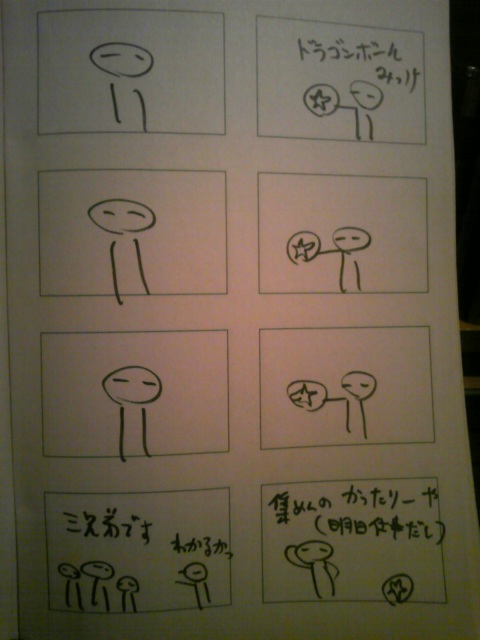 ドラゴンボール
みっけ
集めんの かったりーや
(明日仕事だし)
三兄弟です
わかるかっ